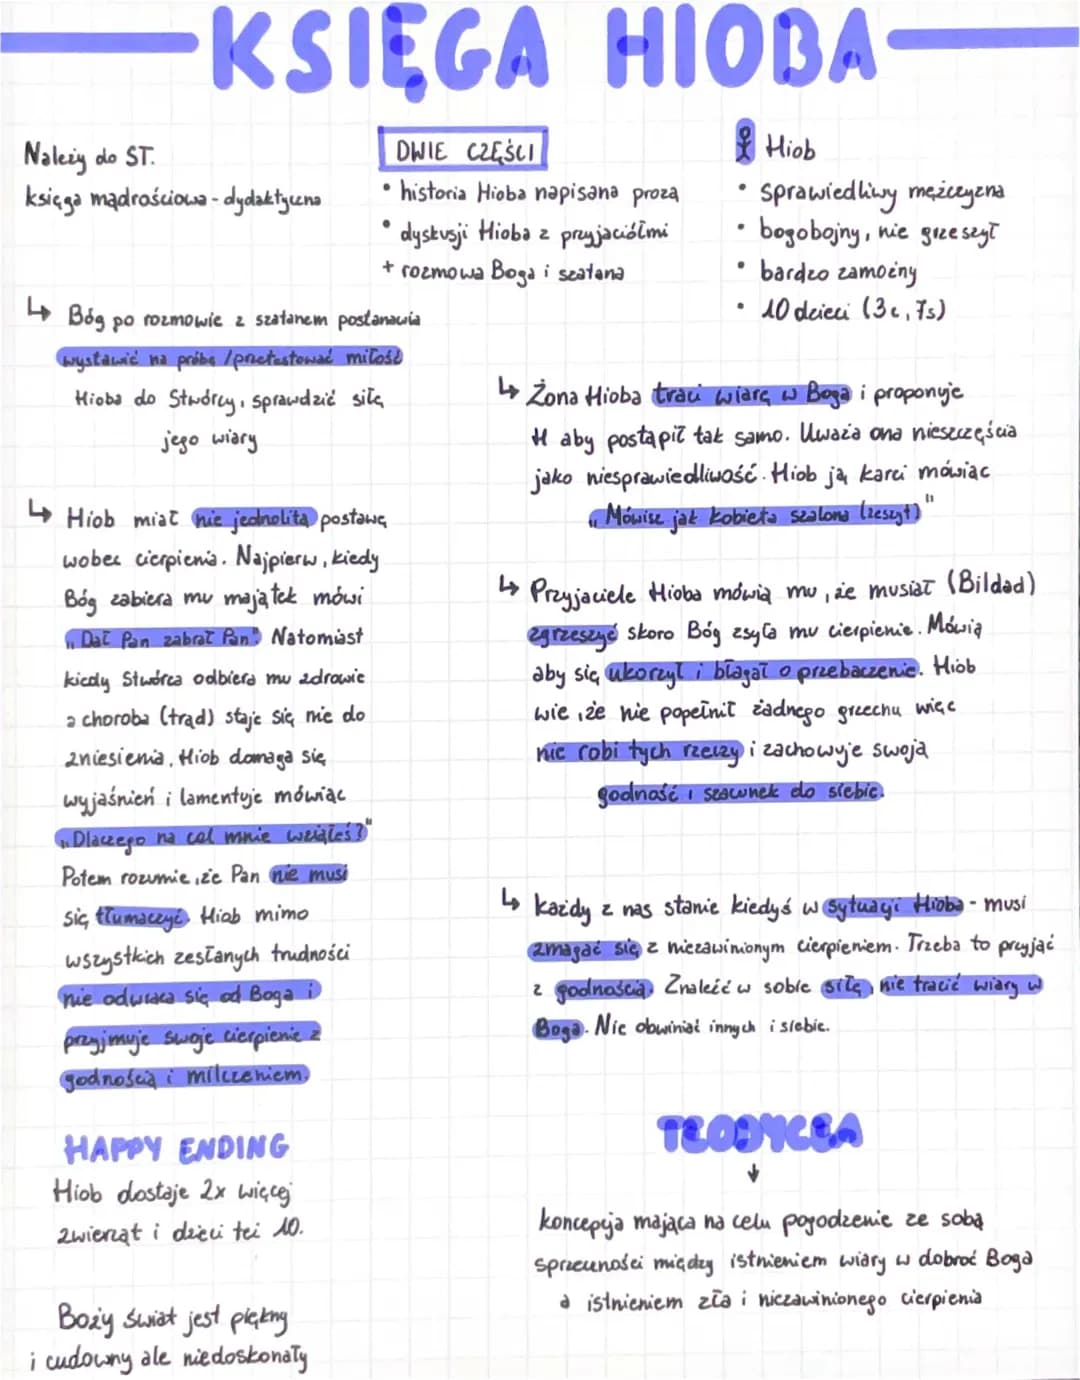 KSIĘGA HIOBA
Należy do ST.
księga mądrościowa - dydaktyczna
DWIE CZĘŚCI
• historia Hioba napisana prozą
• dyskusji Hioba z przyjaciółmi
+ rozmowa Boga i szatana
Hiob
• sprawiedliwy mężczyzna
• bogobojny, nie grzeszył
• bardzo zamożny
• 10 dzieci (3c, 7s)
↳ Bóg po rozmowie z szatanem postanawia
wystawić na próbę / przetestować miłość
Hioba do Stwórcy, sprawdzić siłę
jego wiary
↳ Hiob miał nie jednolitą postawę
wobec cierpienia. Najpierw, kiedy
Bóg zabiera mu majątek mówi
„Dał Pan zabrał Pan". Natomiast
kiedy Stwórca odbiera mu zdrowie
a choroba (trąd) staje się nie do
zniesienia, Hiob domaga się
wyjaśnień i lamentuje mówiąc
„Dlaczego na cel mnie wziąłeś?"
Potem rozumie, że Pan nie musi
się tłumaczyć. Hiob mimo
wszystkich zesłanych trudności
nie odwraca się od Boga i
przyjmuje swoje cierpienie z
godnością i milczeniem.
HAPPY ENDING
Hiob dostaje 2x więcej
zwierząt i dzieci też 10.
Boży świat jest piękny
i cudowny ale niedoskonały
↳ Żona Hioba traci wiarę w Boga i proponuje
H aby postąpił tak samo. Uważa ona nieszczęścia
jako niesprawiedliwość. Hiob ją karci mówiąc
„Mówisz jak kobieta szalona (zeszyt)"
↳ Przyjaciele Hioba mówią mu, że musiał (Bildad)
zgrzeszyć skoro Bóg zsyła mu cierpienie. Mówią
aby się ukorzył i błagał o przebaczenie. Hiob
wie, że nie popełnił żadnego grzechu więc
nie robi tych rzeczy i zachowuje swoją
godność i szacunek do siebie.
↳ każdy z nas stanie kiedyś w sytuacji Hioba - musi
zmagać się z niezawinionym cierpieniem. Trzeba to przyjąć
z godnością. Znaleźć w sobie siłę, nie tracić wiary w
Boga. Nie obwiniać innych i siebie.
TEODYCEA
↓
koncepcja mająca na celu pogodzenie ze sobą
sprzeczności między istnieniem wiary w dobroć Boga
a istnieniem zła i niezawinionego cierpienia